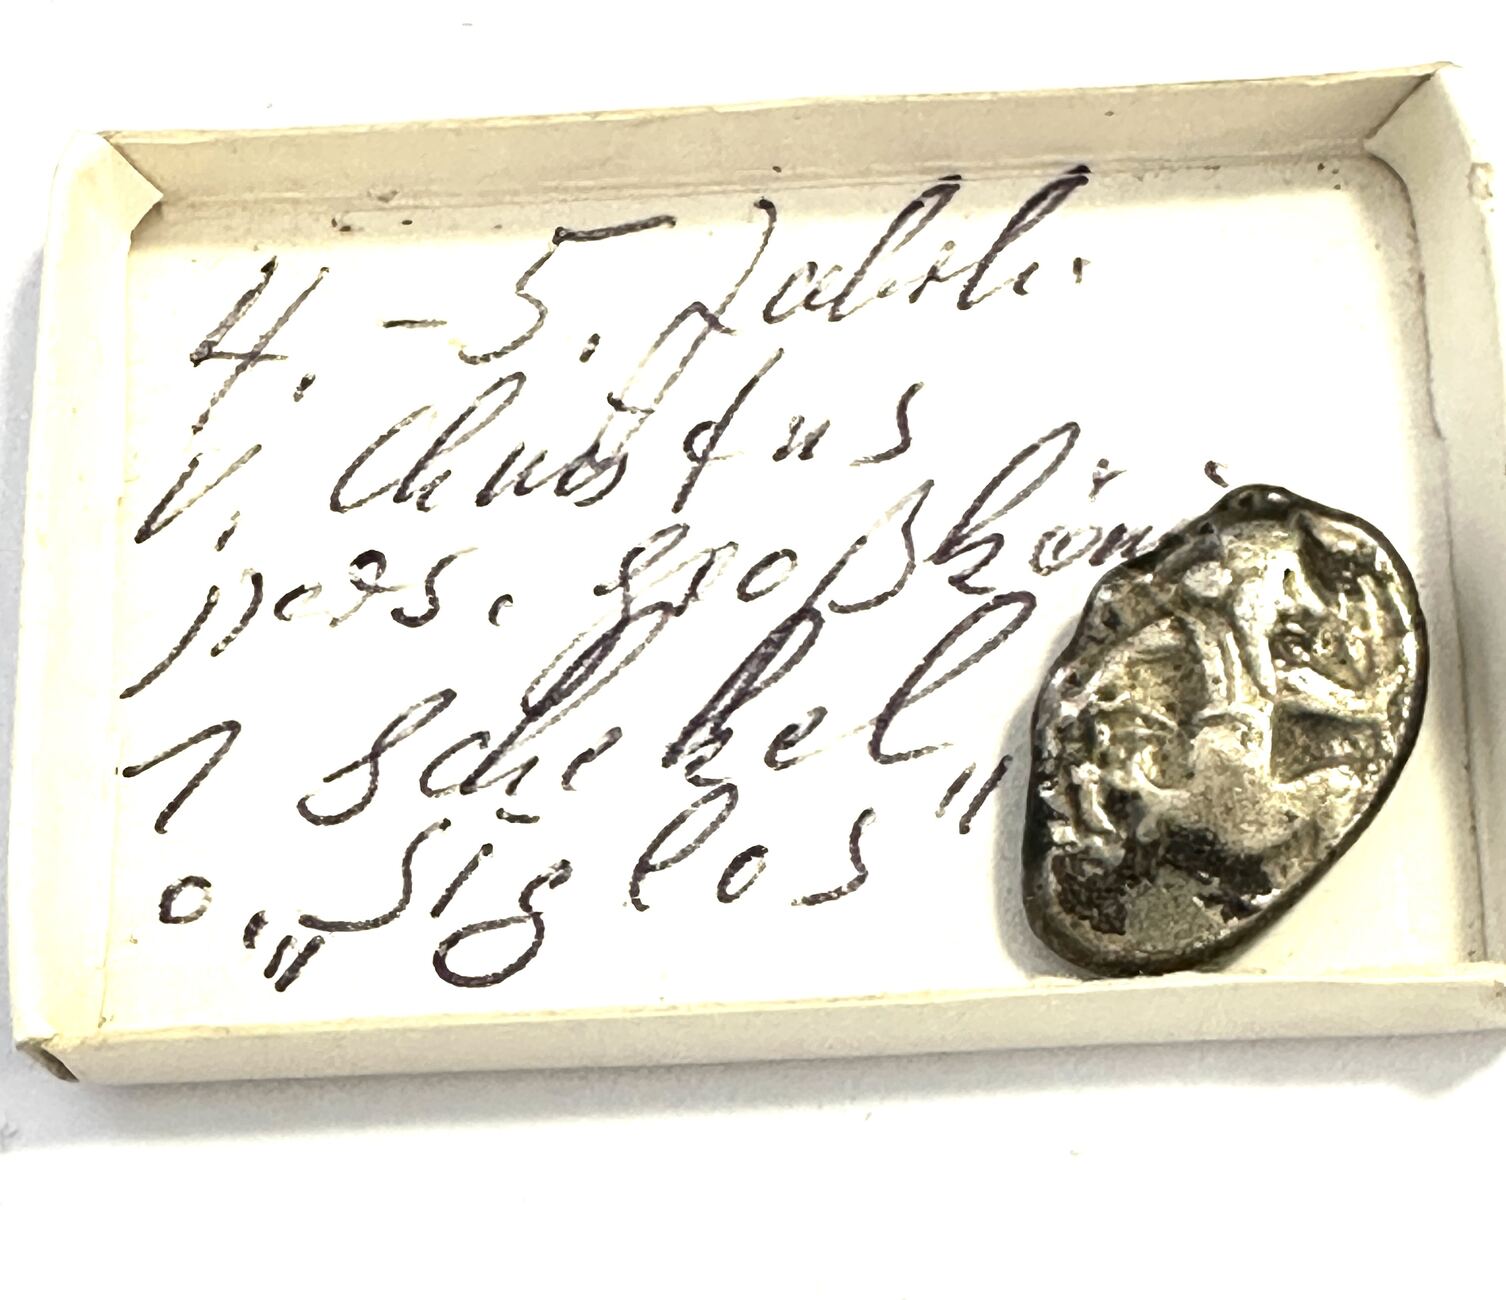 4. - 5. Jahrh.
v. Christus
pers. Großköni
1 Schekel
o. „Siglos"